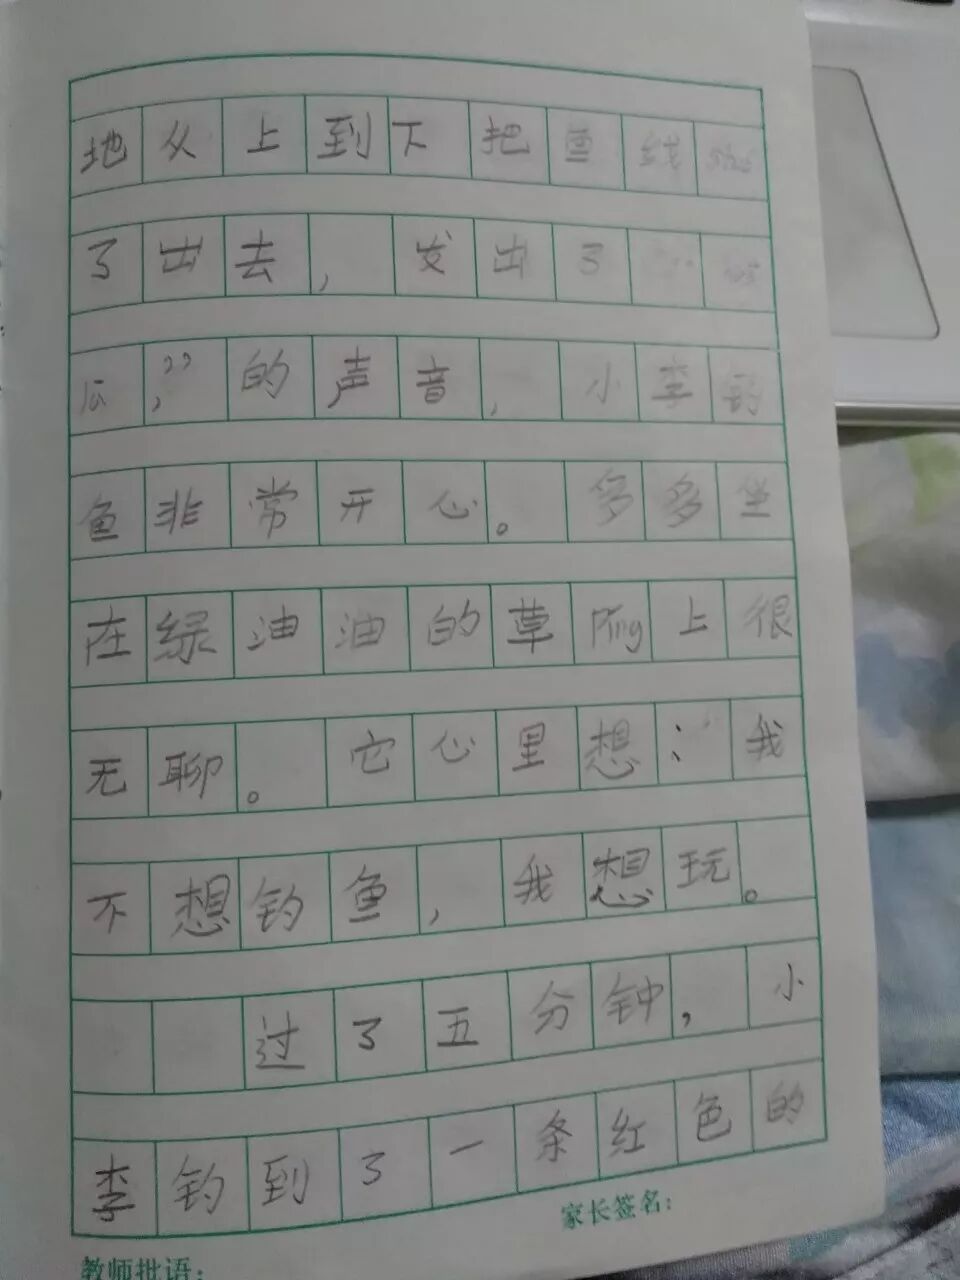 地从上到下把鱼线shuǎ
了出去，发出了
瓜，”的声音，小李钓
鱼非常开心。多多坐
在绿油油的草Ping上很
无聊。它心里想：“我
不想钓鱼，我想玩。
过了五分钟，小
李钓到了一条红色的
家长签名：
教师批语：